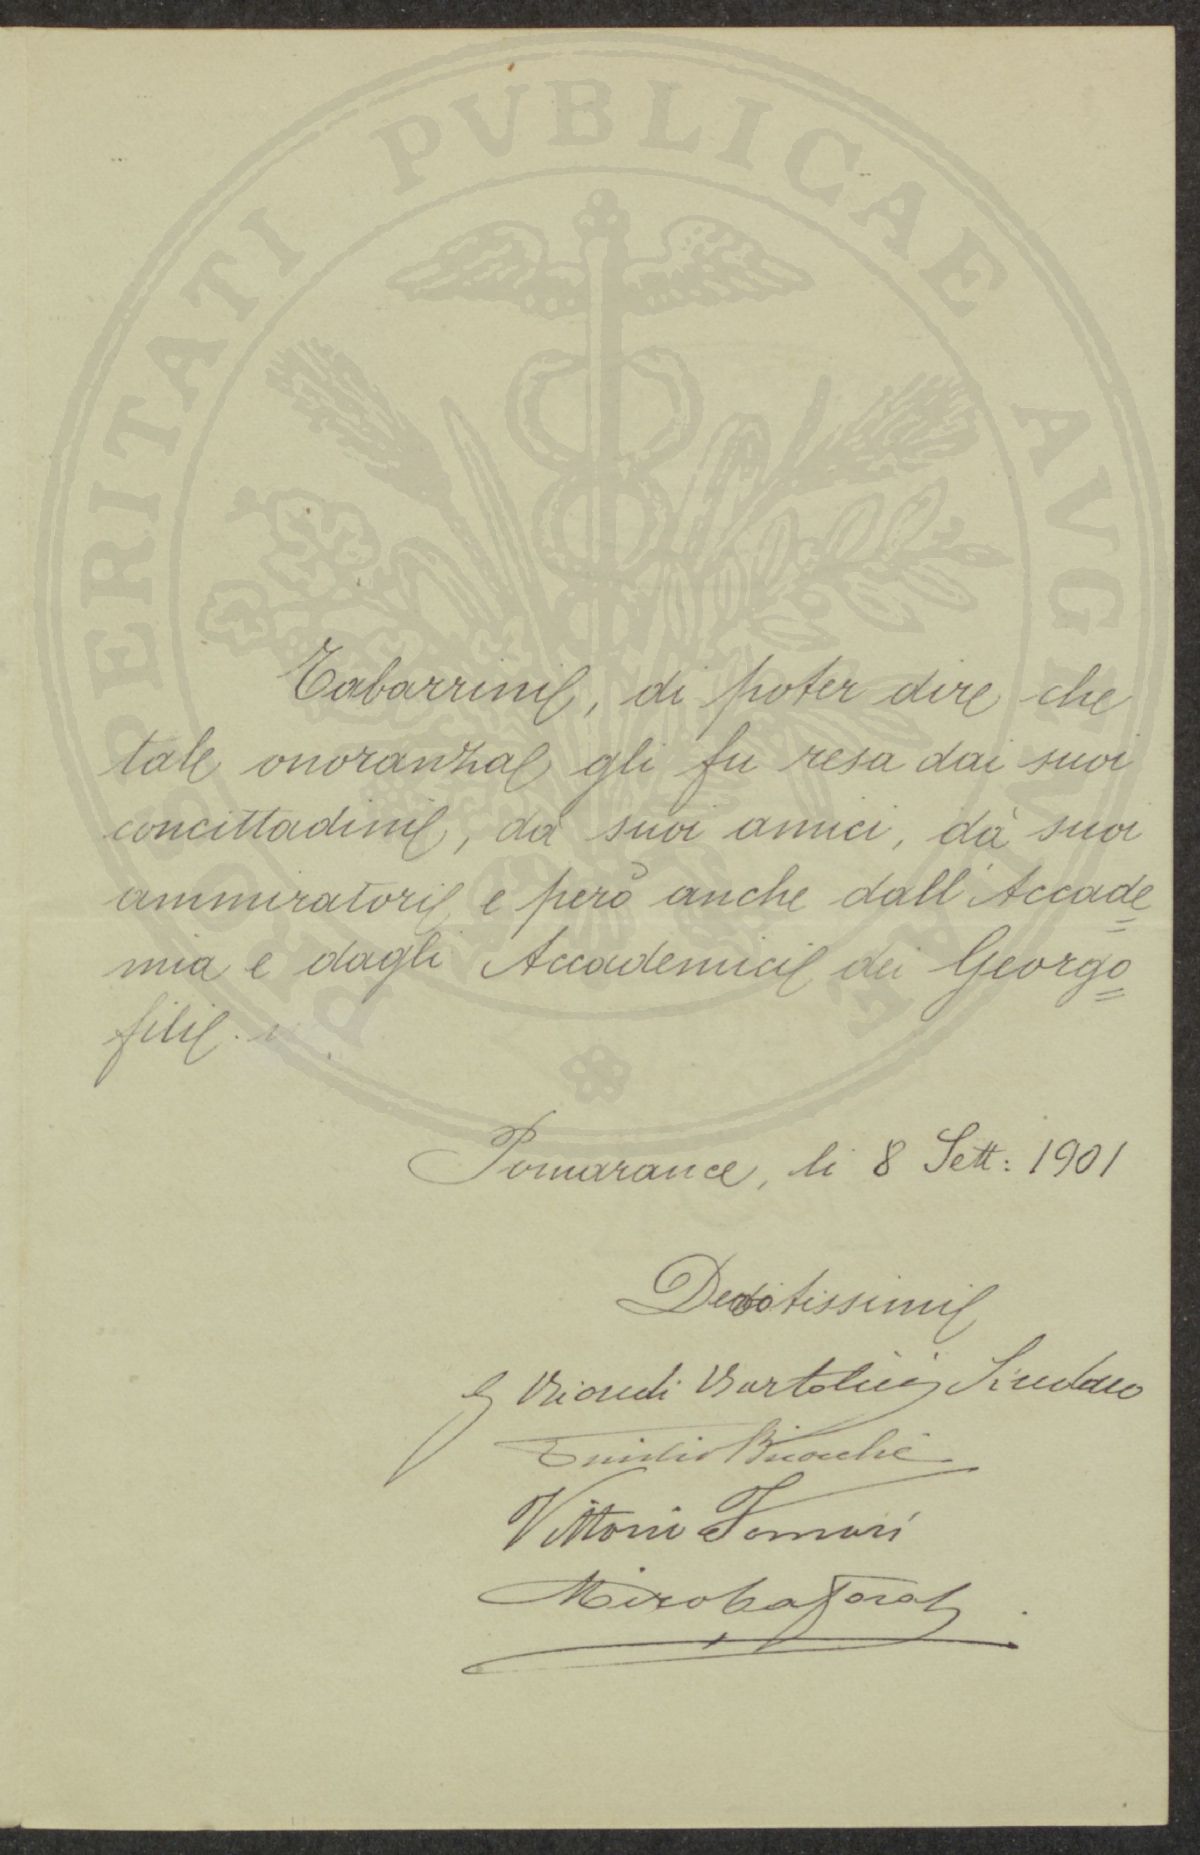 PROSPERITATI PUBLICAE AUGENDAE
Tabarrini, di poter dire che
tale onoranza gli fu resa dai suoi
concittadini, da' suoi amici, dà suoi
ammiratori e però anche dall'Accade
mia e dagli Accademici dei Georgo
fili.
Pomarance, li 8 Sett: 1901
Devotissimi
G Biondi Bartolini Sindaco
Emilio Bicocchi
Vittorio